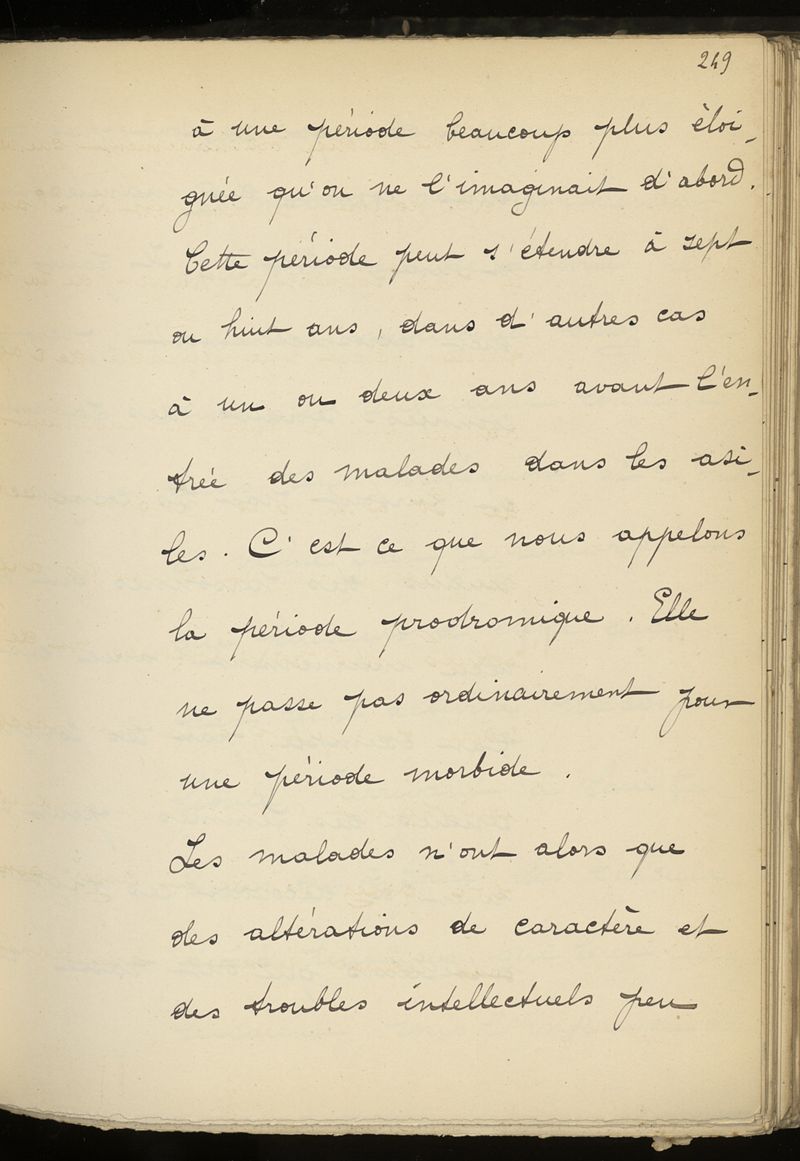 249
à une période beaucoup plus éloi-
gnée qu'on ne l'imaginait d'abord.
Cette période peut s'étendre à sept
ou huit ans, dans d'autres cas
à un ou deux ans avant l'en-
trée des malades dans les asi-
les. C'est ce que nous appelons
la période prodromique. Elle
ne passe pas ordinairement pour
une période morbide.
Les malades n'ont alors que
des altérations de caractère et
des troubles intellectuels peu